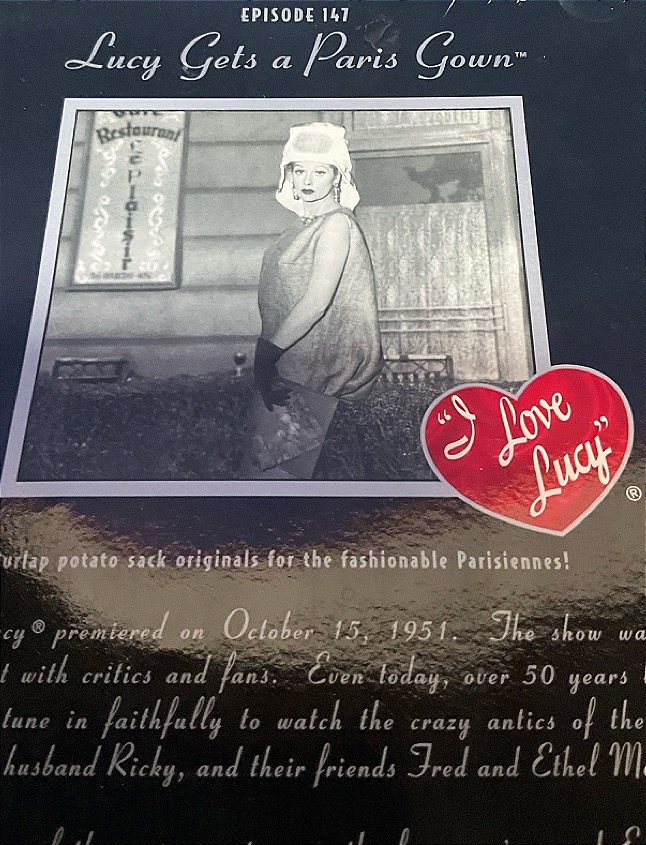 EPISODE 147
Lucy Gets a Paris Gown™
Restaurant
Le Plaisir
"I Love
Lucy"
®
urlap potato sack originals for the fashionable Parisiennes!
cy® premiered on October 15, 1951. The show wa
t with critics and fans. Even today, over 50 years
tune in faithfully to watch the crazy antics of the
husband Ricky, and their friends Fred and Ethel M